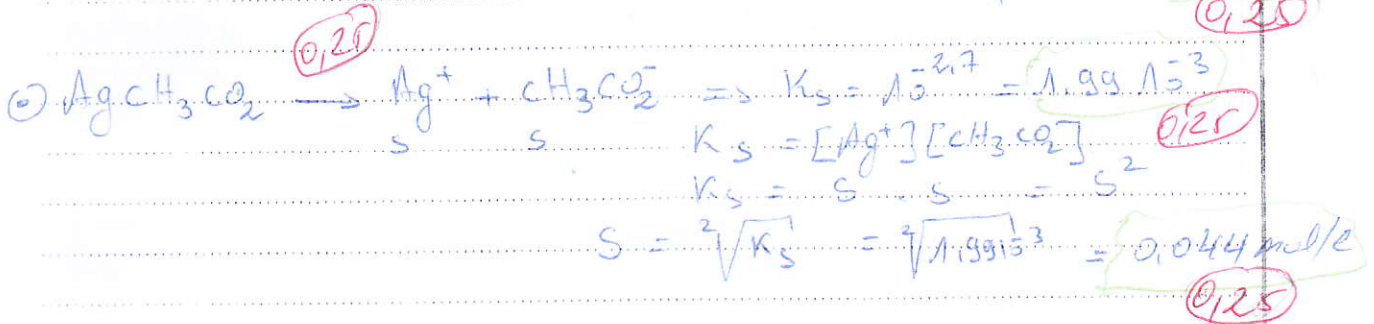 0,25
0,25
⊙ AgCH₃CO₂ → Ag⁺ + CH₃CO₂⁻ => Ks = 10^-2,7 = 1.99 10^-3
0,25
s s Ks = [Ag⁺][CH₃CO₂⁻]
Ks = s . s = s²
S = ²√Ks = ²√1,99 10^-3 = 0,044 mol/l
0,25